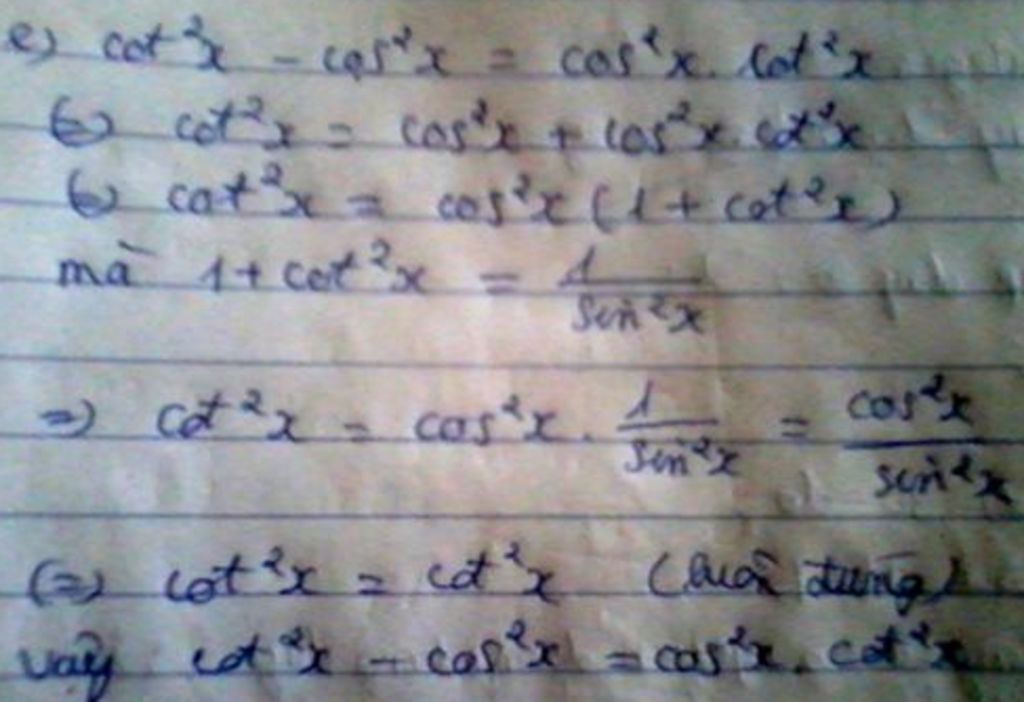 e) cot²x - cos²x = cos²x. cot²x
(=) cot²x = cos²x + cos²x. cot²x
(=) cot²x = cos²x (1 + cot²x)
mà 1 + cot²x = 1/sin²x
=> cot²x = cos²x. 1/sin²x = cos²x/sin²x
(=) cot²x = cot²x (luôn đúng)
vậy cot²x - cos²x = cos²x. cot²x